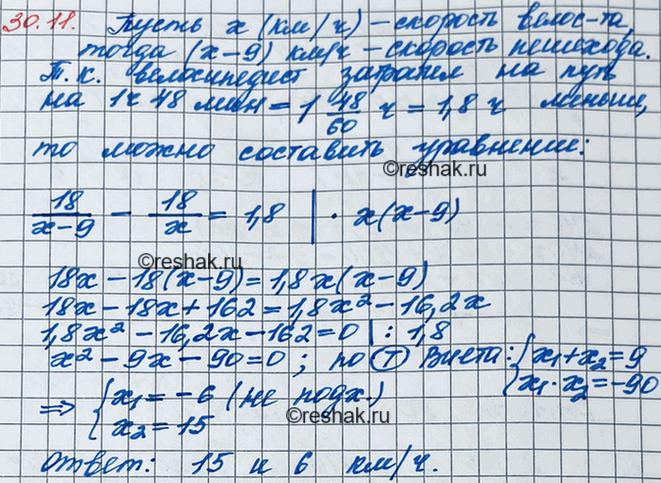 30.11. Пусть x (км/ч) – скорость велос-та,
тогда (x-9) км/ч – скорость пешехода.
Т. к. велосипедист затратил на путь
на 1ч 48 мин = 1 48/60 ч = 1,8 ч меньше,
то можно составить уравнение:
©reshak.ru
18/(x-9) - 18/x = 1,8 | · x(x-9)
©reshak.ru
18x - 18(x-9) = 1,8x(x-9)
18x - 18x + 162 = 1,8x² - 16,2x
1,8x² - 16,2x - 162 = 0 | : 1,8
x² - 9x - 90 = 0 ; по Т Виета: { x₁ + x₂ = 9
x₁ · x₂ = -90
⇒ { x₁ = -6 (не подх.)
x₂ = 15
©reshak.ru
Ответ: 15 и 6 км/ч.